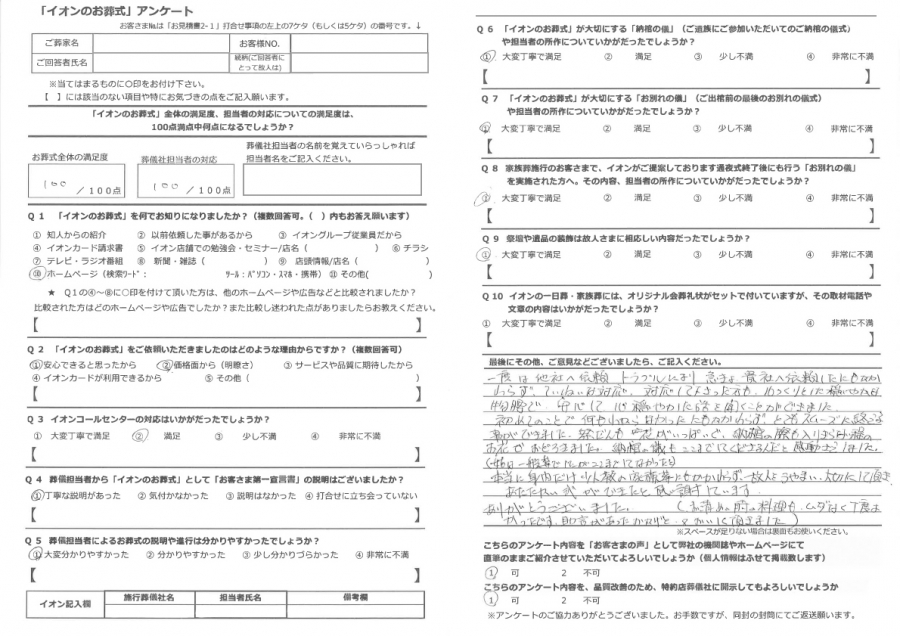 「イオンのお葬式」アンケート
お客さま№は「お見積書2-1」打合せ事項の左上の7ケタ（もしくは5ケタ）の番号です。↓
ご葬家名
お客様NO.
ご回答者氏名
続柄(ご回答者にとって故人は)
※当てはまるものに〇印をお付け下さい。
【　】には該当のない項目や特にお気づきの点をご記入願います。
「イオンのお葬式」全体の満足度、担当者の対応についての満足度は、
100点満点中何点になるでしょうか？
お葬式全体の満足度
100 ／100点
葬儀社担当者の対応
100 ／100点
葬儀社担当者の名前を覚えていらっしゃれば
担当者名をご記入ください。
Q１　「イオンのお葬式」を何でお知りになりましたか？（複数回答可。（　）内もお答え願います）
① 知人からの紹介　② 以前依頼した事があるから　③ イオングループ従業員だから
④ イオンカード請求書　⑤ イオン店舗での勉強会・セミナー/店名（　）　⑥ チラシ
⑦ テレビ・ラジオ番組　⑧ 新聞・雑誌（　）　⑨ 店頭情報/店名（　）
⑩ ホームページ（検索ﾜｰﾄﾞ：　ﾂｰﾙ：ﾊﾟｿｺﾝ・ｽﾏﾎ・携帯）　⑪ その他(　)
★　Q１の④～⑧に〇印を付けて頂いた方は、他のホームページや広告などと比較されましたか？
比較された方はどのホームページや広告でしたか？また比較し迷われた点がありましたらお教えください。
【　】
Q２　「イオンのお葬式」をご依頼いただきましたのはどのような理由からですか？（複数回答可）
①安心できると思ったから　②価格面から（明瞭さ）　③ サービスや品質に期待したから
④ イオンカードが利用できるから　⑤ その他（　）
【　】
Q３　イオンコールセンターの対応はいかがだったでしょうか？
①　大変丁寧で満足　②　満足　③　少し不満　④　非常に不満
【　】
Q４　葬儀担当者から「イオンのお葬式」として「お客さま第一宣言書」の説明はございましたか？
①丁寧な説明があった　② 気付かなかった　③ 説明はなかった　④ 打合せに立ち会っていない
【　】
Q５　葬儀担当者によるお葬式の説明や進行は分かりやすかったでしょうか？
①大変分かりやすかった　② 分かりやすかった　③ 少し分かりづらかった　④ 非常に不満
【　】
イオン記入欄
施行葬儀社名
担当者氏名
備考欄
Q６　「イオンのお葬式」が大切にする「納棺の儀」（ご遺族にご参加いただいてのご納棺の儀式）
や担当者の所作についていかがだったでしょうか？
①　大変丁寧で満足　②　満足　③　少し不満　④　非常に不満
【　】
Q７　「イオンのお葬式」が大切にする「お別れの儀」（ご出棺前の最後のお別れの儀式）
や担当者の所作についていかがだったでしょうか？
①　大変丁寧で満足　②　満足　③　少し不満　④　非常に不満
【　】
Q８　家族葬施行のお客さまで、イオンがご提案しております通夜式終了後にも行う「お別れの儀」
を実施された方へ。その内容、担当者の所作についていかがだったでしょうか？
①　大変丁寧で満足　②　満足　③　少し不満　④　非常に不満
【　】
Q９　祭壇や遺品の装飾は故人さまに相応しい内容だったでしょうか？
①　大変丁寧で満足　②　満足　③　少し不満　④　非常に不満
【　】
Q10　イオンの一日葬・家族葬には、オリジナル会葬礼状がセットで付いていますが、その取材電話や
文章の内容はいかがだったでしょうか？
①　大変丁寧で満足　②　満足　③　少し不満　④　非常に不満
【　】
最後にその他、ご意見などございましたら、ご記入ください。
一度は他社へ依頼 トラブルにより 急きょ 貴社へ依頼したにもかか
わらず、ていねいな対応
初めてのことで 何も
事ができました。
お花で おどろきました。
本当に身内だけ 少人数の家族葬にもかかわらず、故人をうやまい、大切にして頂き
あたたかい 式ができたと 感謝しています。
ありがとうございました。
※スペースが足りない場合は裏面もお使いください。
こちらのアンケート内容を「お客さまの声」として弊社の機関誌やホームページにて
直筆のままご紹介させていただいてよろしいでしょうか（個人情報はふせて掲載致します）
1　可　2　不可
こちらのアンケート内容を、品質改善のため、特約店葬儀社に開示してもよろしいでしょうか
1　可　2　不可
※アンケートのご協力ありがとうございました。お手数ですが、同封の封筒にてご返送願います。